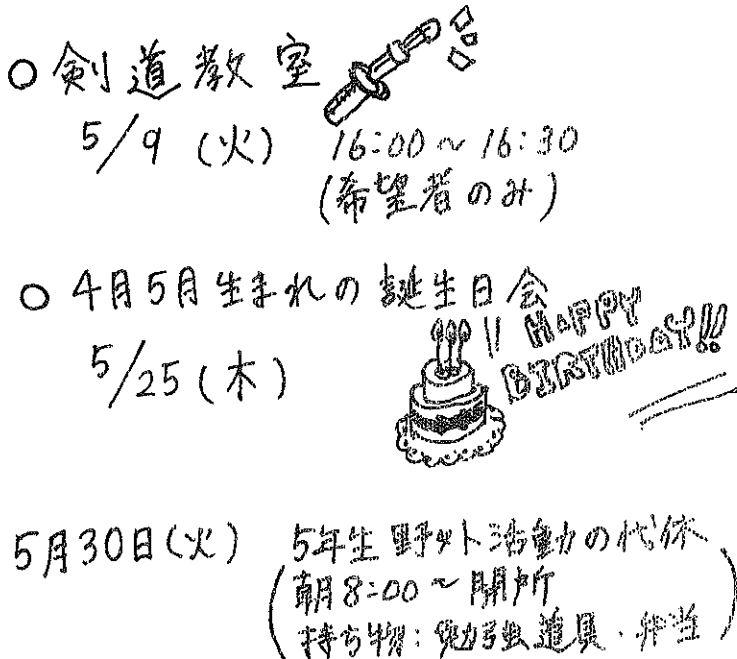 ○ 剣道教室
5/9 (火) 16:00〜16:30
(希望者のみ)
○ 4月5月生まれの誕生日会
5/25 (木)
HAPPY
BIRTHDAY!!
5月30日(火) 5年生野外活動の代休
(朝8:00〜開所
持ち物:勉強道具・弁当)